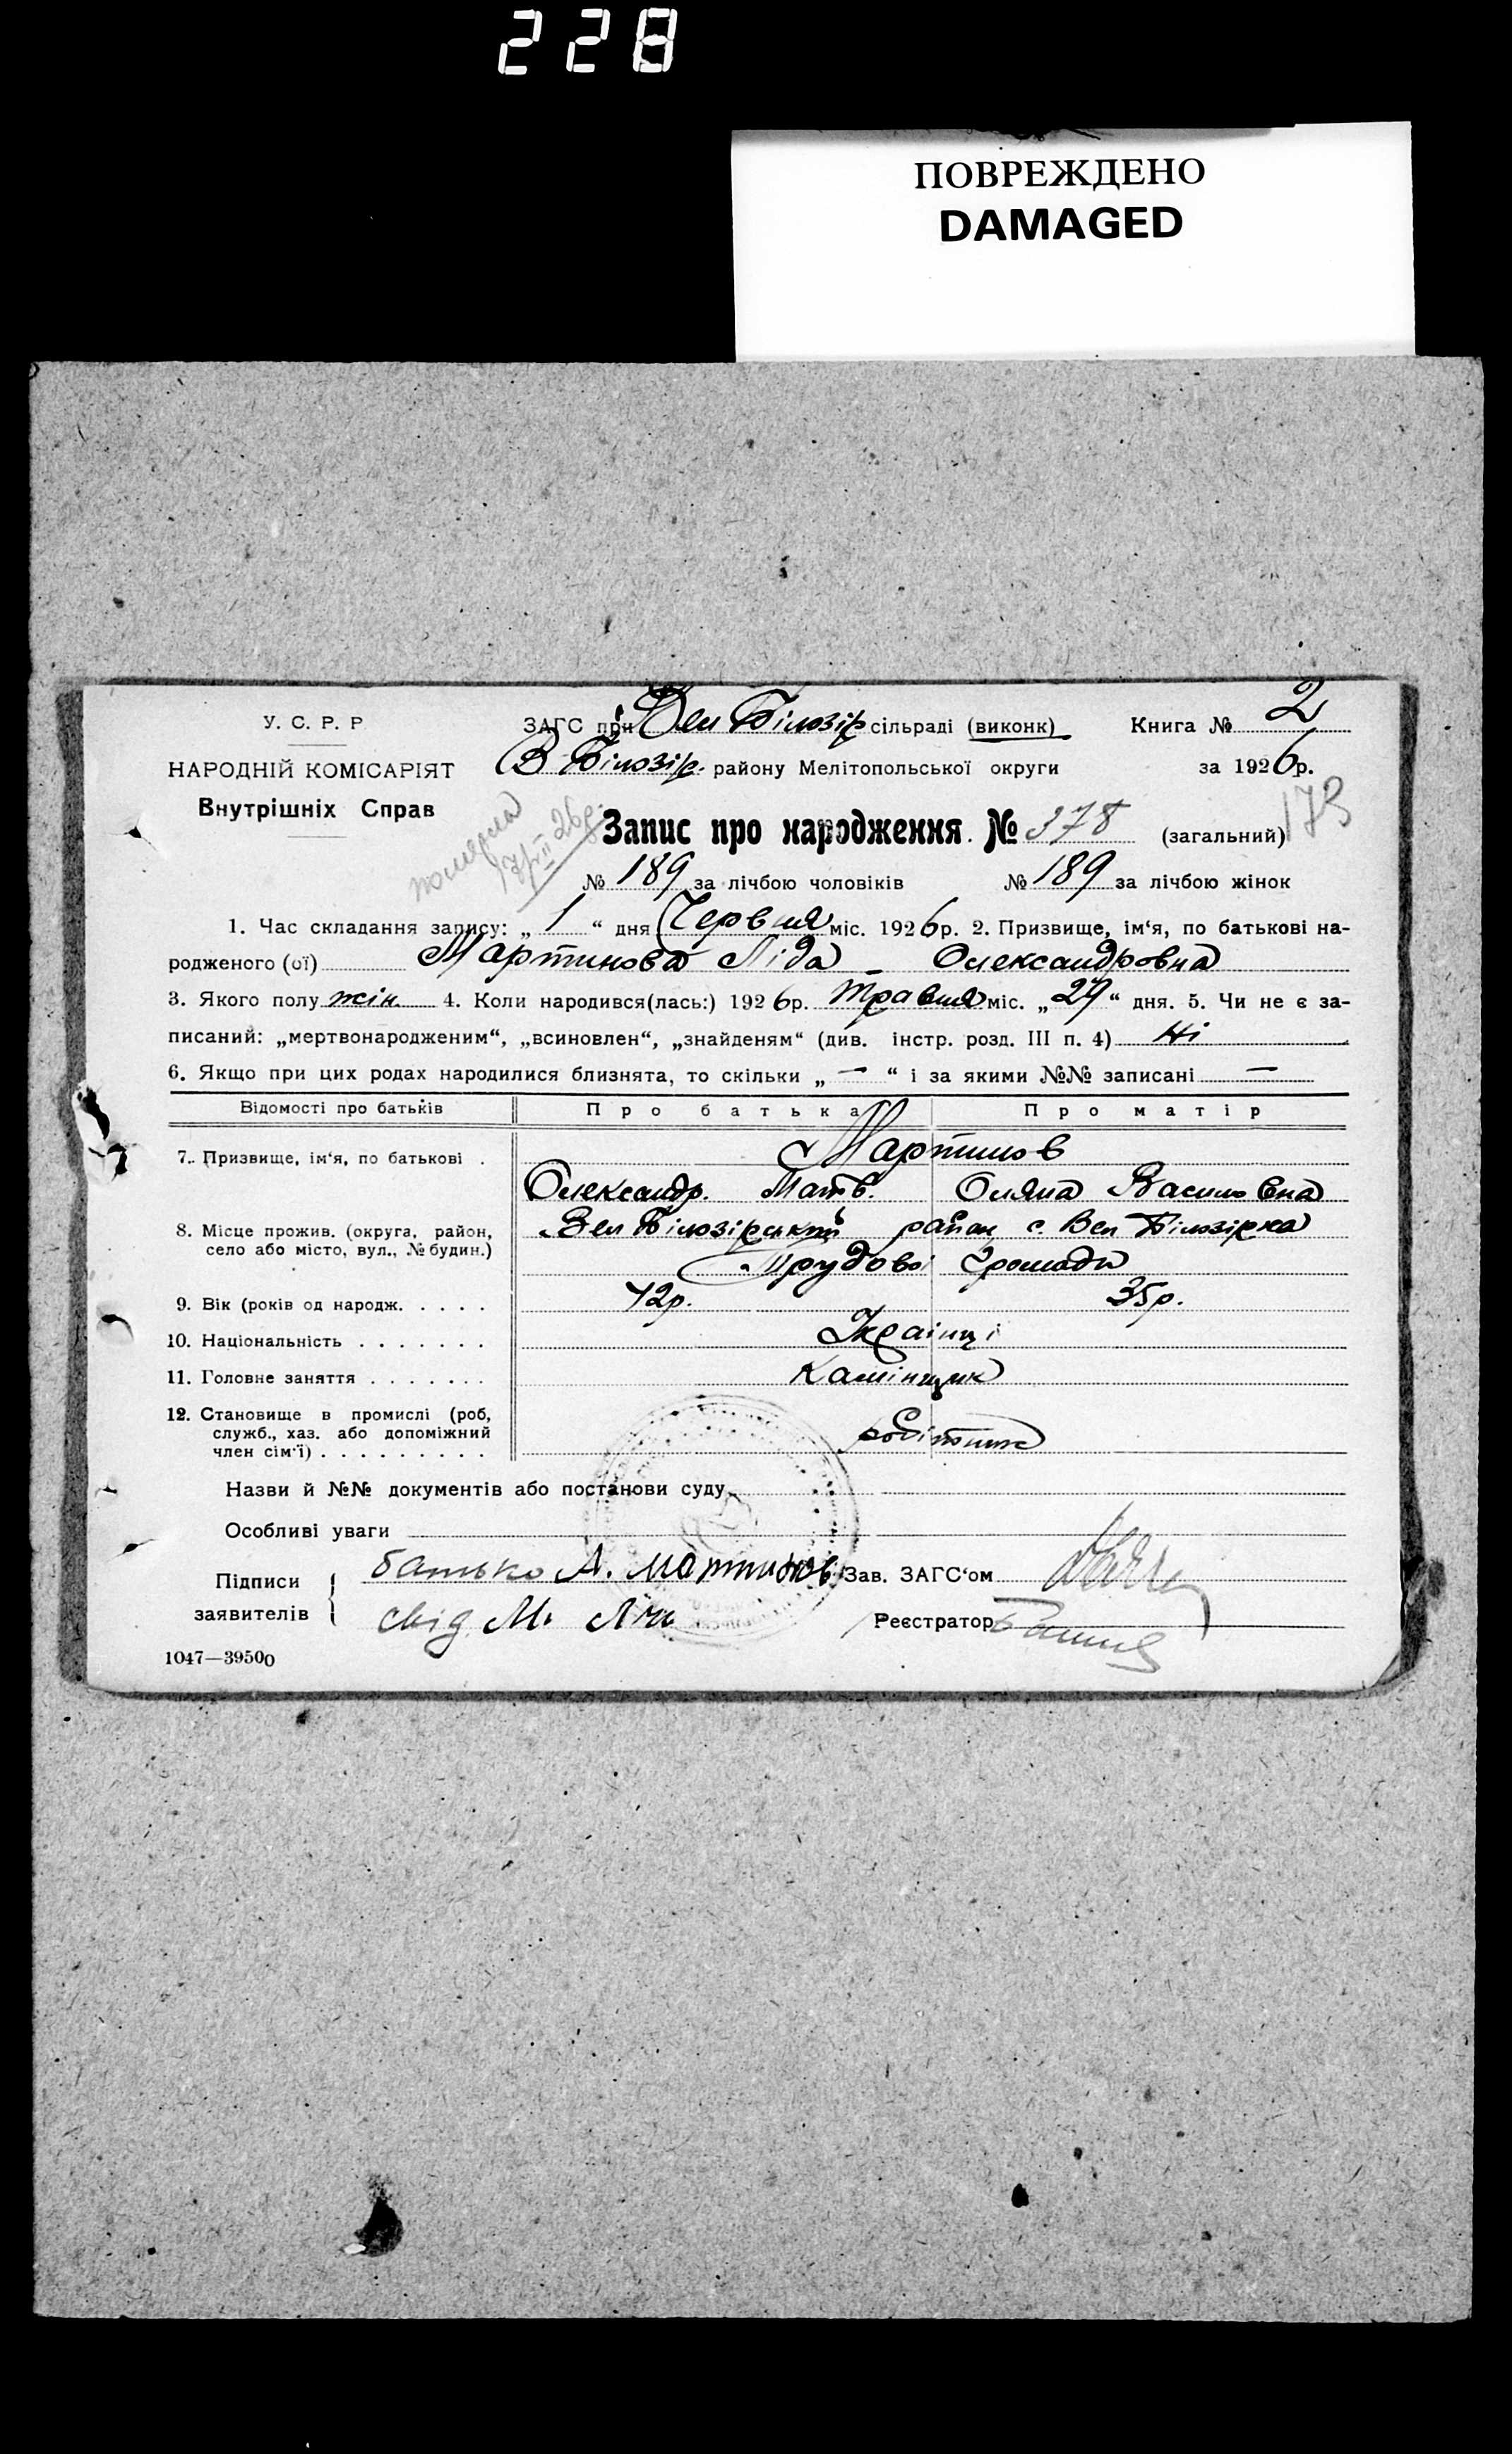 228
ПОВРЕЖДЕНО
DAMAGED
У. С. Р. Р
НАРОДНІЙ КОМІСАРІЯТ
Внутрішніх Справ
ЗАГС при Вел Білозір сільраді (виконк) Книга № 2
В Білозір. району Мелітопольської округи за 1926р.
померла
26р.
173
Запис про народження. № 378 (загальний)
№ 189 за лічбою чоловіків № 189 за лічбою жінок
1. Час складання запису: „ 1 “ дня Червня міс. 1926р. 2. Призвище, ім‘я, по батькові на-
родженого (ої) Мартинова Ліда Олександровна
3. Якого полу жін. 4. Коли народився(лась:) 1926р. Травня міс. „ 27 “ дня. 5. Чи не є за-
писаний: „мертвонародженим“, „всиновлен“, „знайденям“ (див. інстр. розд. III п. 4) Ні
6. Якщо при цих родах народилися близнята, то скільки „ — “ і за якими №№ записані —
Відомості про батьків Про батька Про матір
7. Призвище, ім‘я, по батькові . Мартинов
Олександр. Матв. Оляна Василовна
8. Місце прожив. (округа, район,
село або місто, вул., № будин.)
Вел Білозірський район с. Вел Білозірка
Трудової Громади
9. Вік (років од народж. . . . . 42р. 35р.
10. Національність . . . . . . . Українці
11. Головне заняття . . . . . . . Камінщик
12. Становище в промислі (роб,
служб., хаз. або допоміжний
член сім‘ї) . . . . . . . . . робітник
Назви й №№ документів або постанови суду
Особливі уваги
Підписи
заявителів
батько А. Мартинов
свід М.
Зав. ЗАГС‘ом
Реєстратор
1047—39500